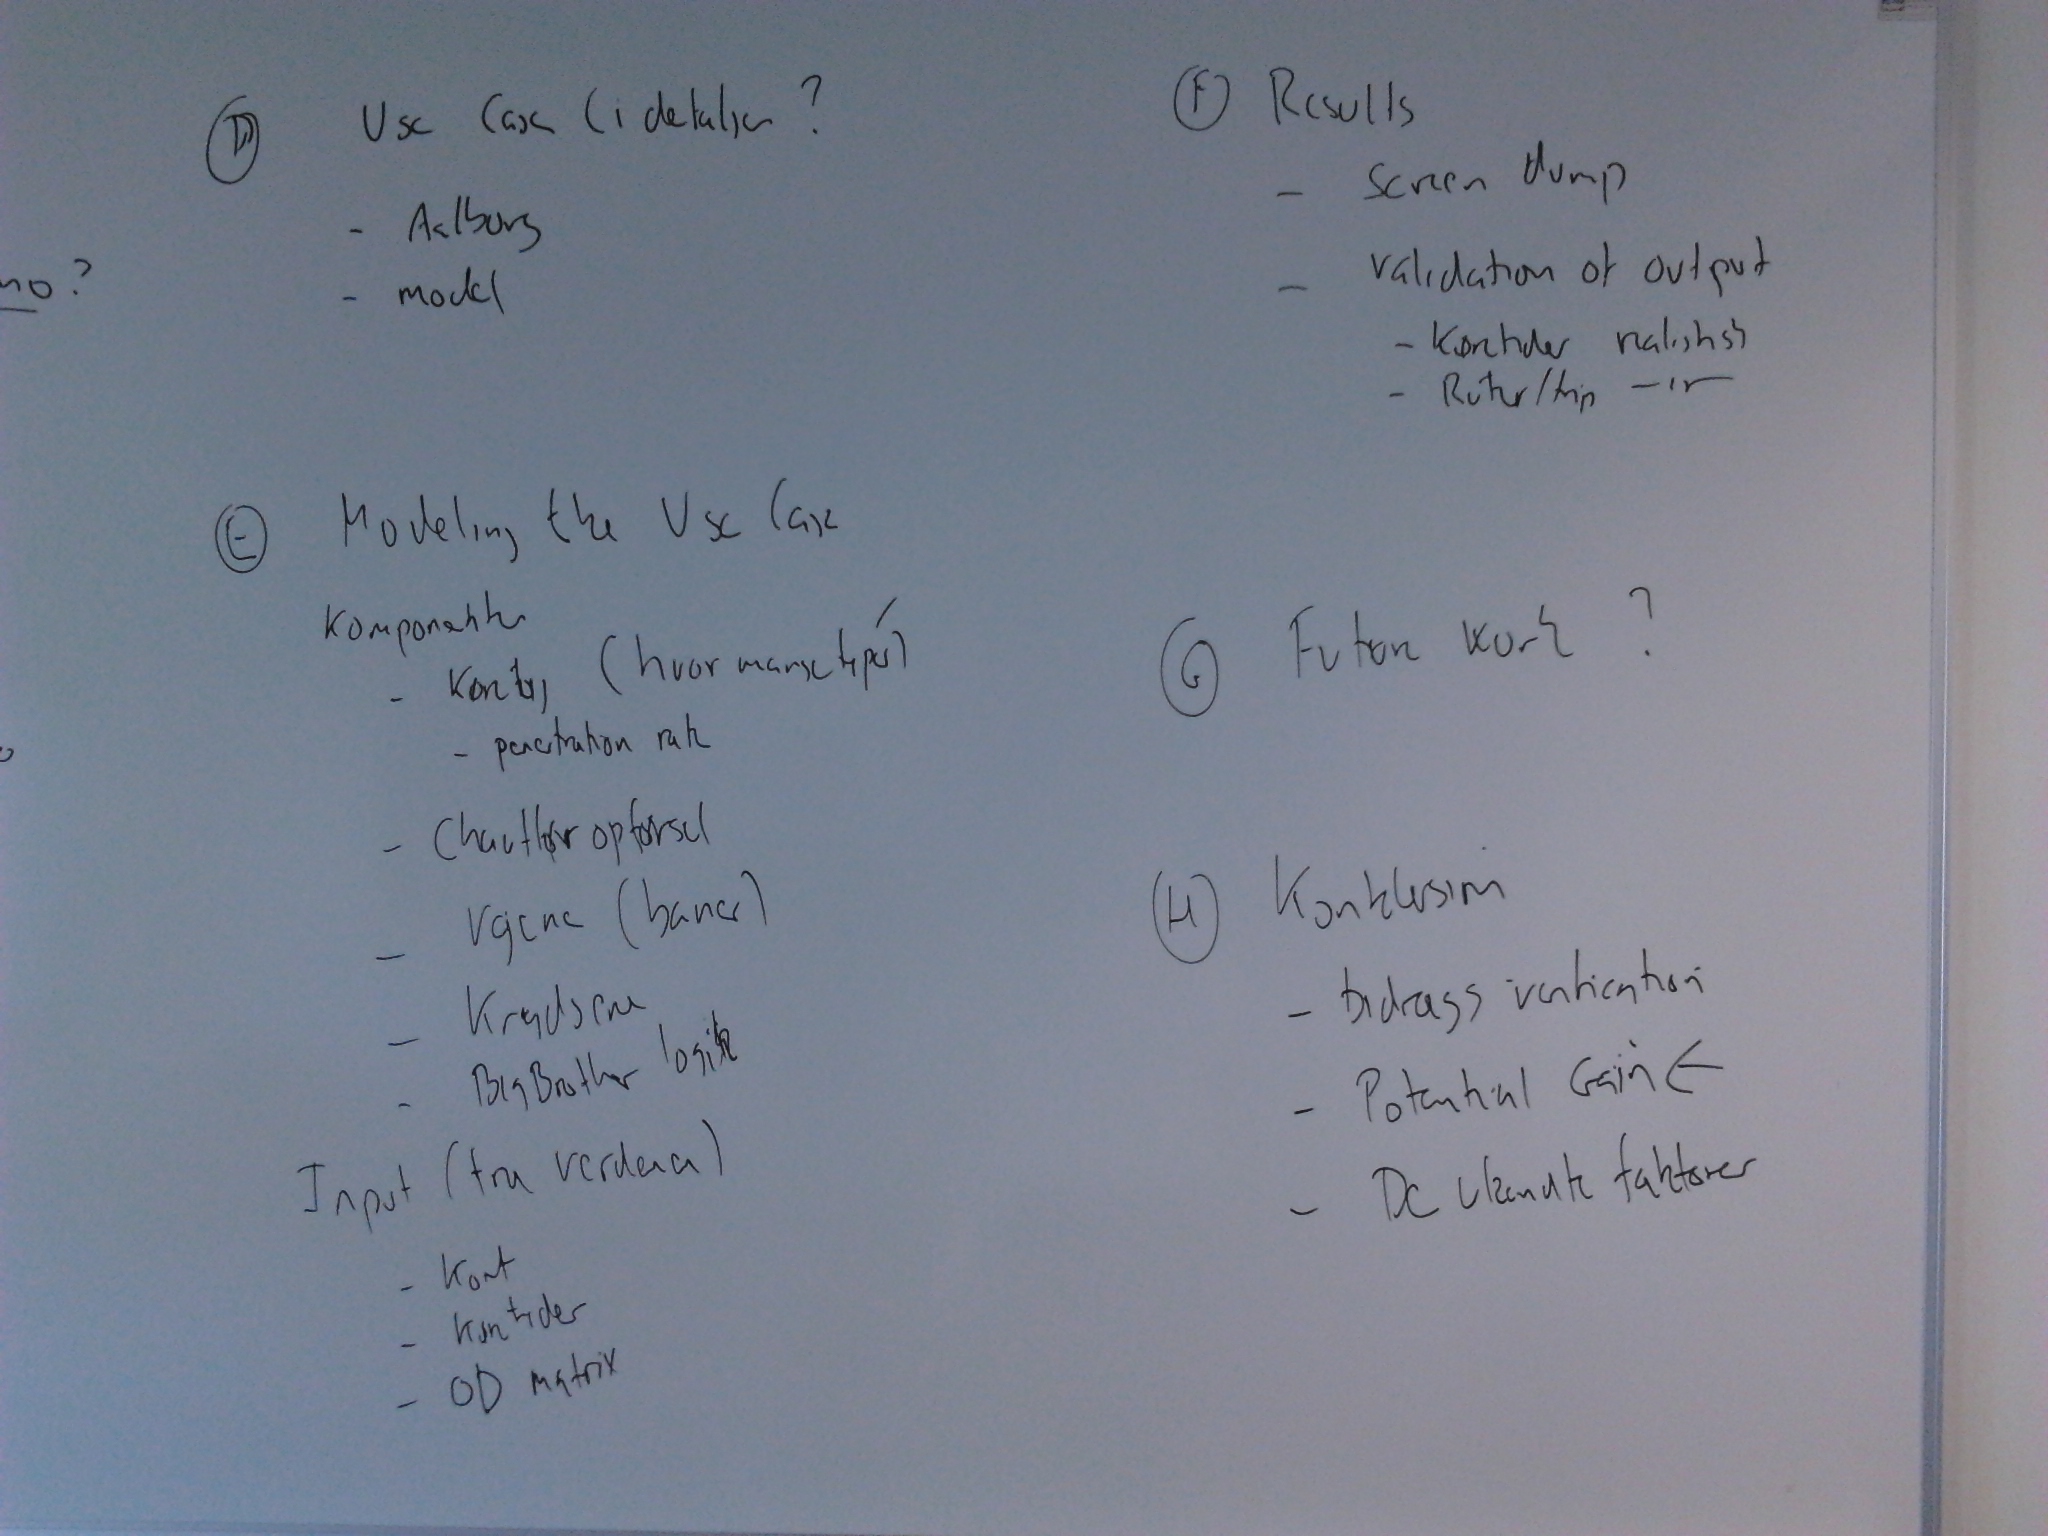 no?
D Use Case (i detaljer?
- Aalborg
- model
E Modeling the Use Case
Komponenter
- Køretøj (hvor mange typer)
- penetration rate
- Chauffør opførsel
- Vejene (baner)
- Krydsene
- BigBrother logik
Input (fra verdenen)
- Kort
- Køretider
- OD matrix
F Results
- Screen dump
- Validation of output
- Køretider realistisk
- Ruter/trip -11-
G Future work ?
H Konklusion
- bidrags verification
- Potential Gain ←
- De ukendte faktorer